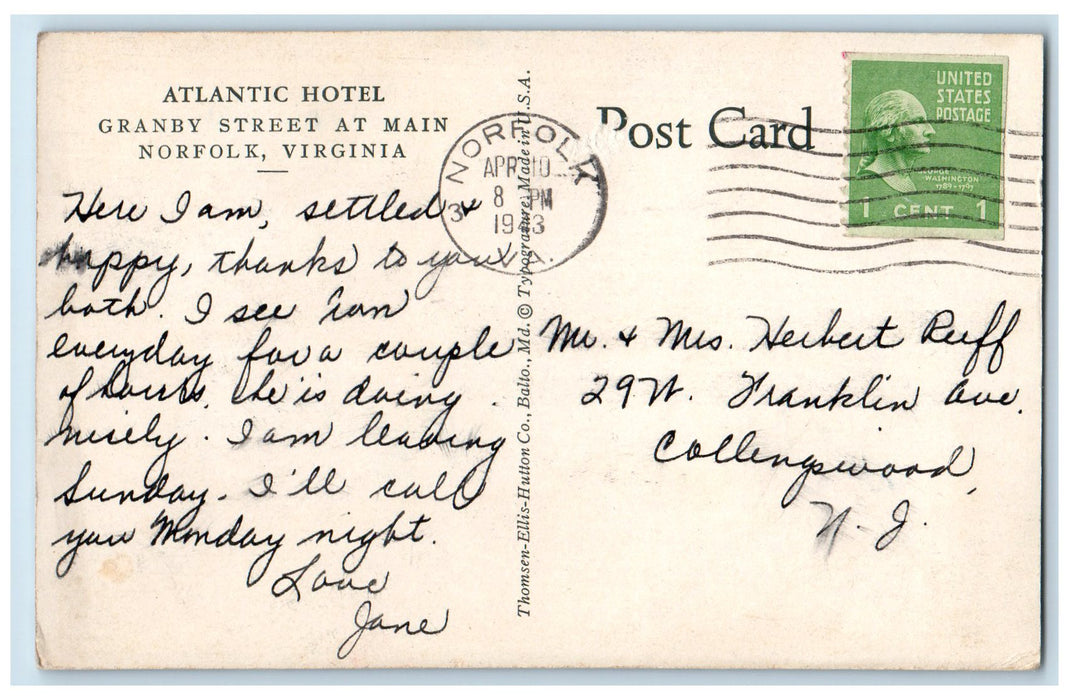 ATLANTIC HOTEL
GRANBY STREET AT MAIN
NORFOLK, VIRGINIA
Here I am, settled &
happy, thanks to you
both. I see
everyday for a couple
of hours, he is doing
nisely. I am leaving
Sunday. I'll call
you Monday night.
Love
Jane
NORFOLK
APR 10
8 PM
3
VA.
Thomsen-Ellis-Hutton Co., Balto., Md. © Typograture, Made in U.S.A.
Post Card
UNITED
STATES
POSTAGE
GEORGE
WASHINGTON
1789-1797
1 CENT 1
Mr. & Mrs. Herbert Ruff
29 W. Franklin Ave.
Collingswood,
N. J.